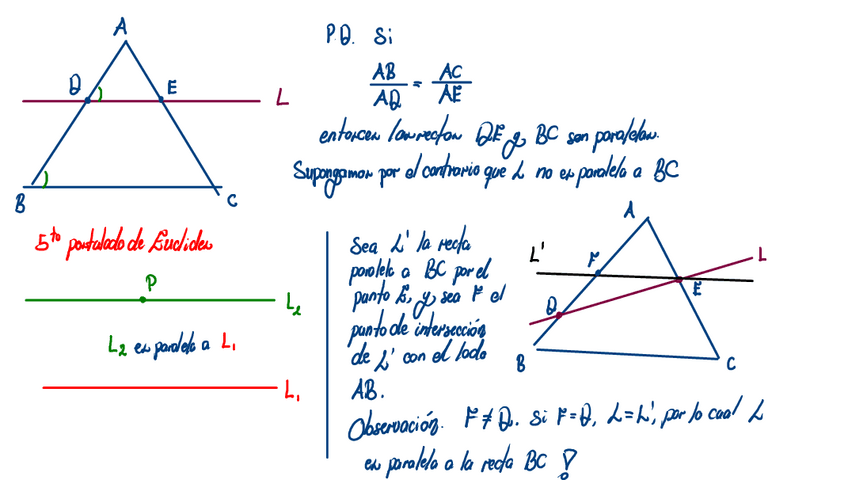 A
D
E
L
B
C
P.D. Si
AB/AD = AC/AE
entonces las rectas DE y BC son paralelas.
Supongamos por el contrario que L no es paralela a BC
5to postulado de Euclides
P
L2
L2 es paralela a L1
L1
Sea L' la recta
paralela a BC por el
punto E, y sea F el
punto de intersección
de L' con el lado
AB.
A
L'
F
L
E
D
B
C
Observación. F ≠ D. Si F = D, L = L', por lo cual L
es paralela a la recta BC !